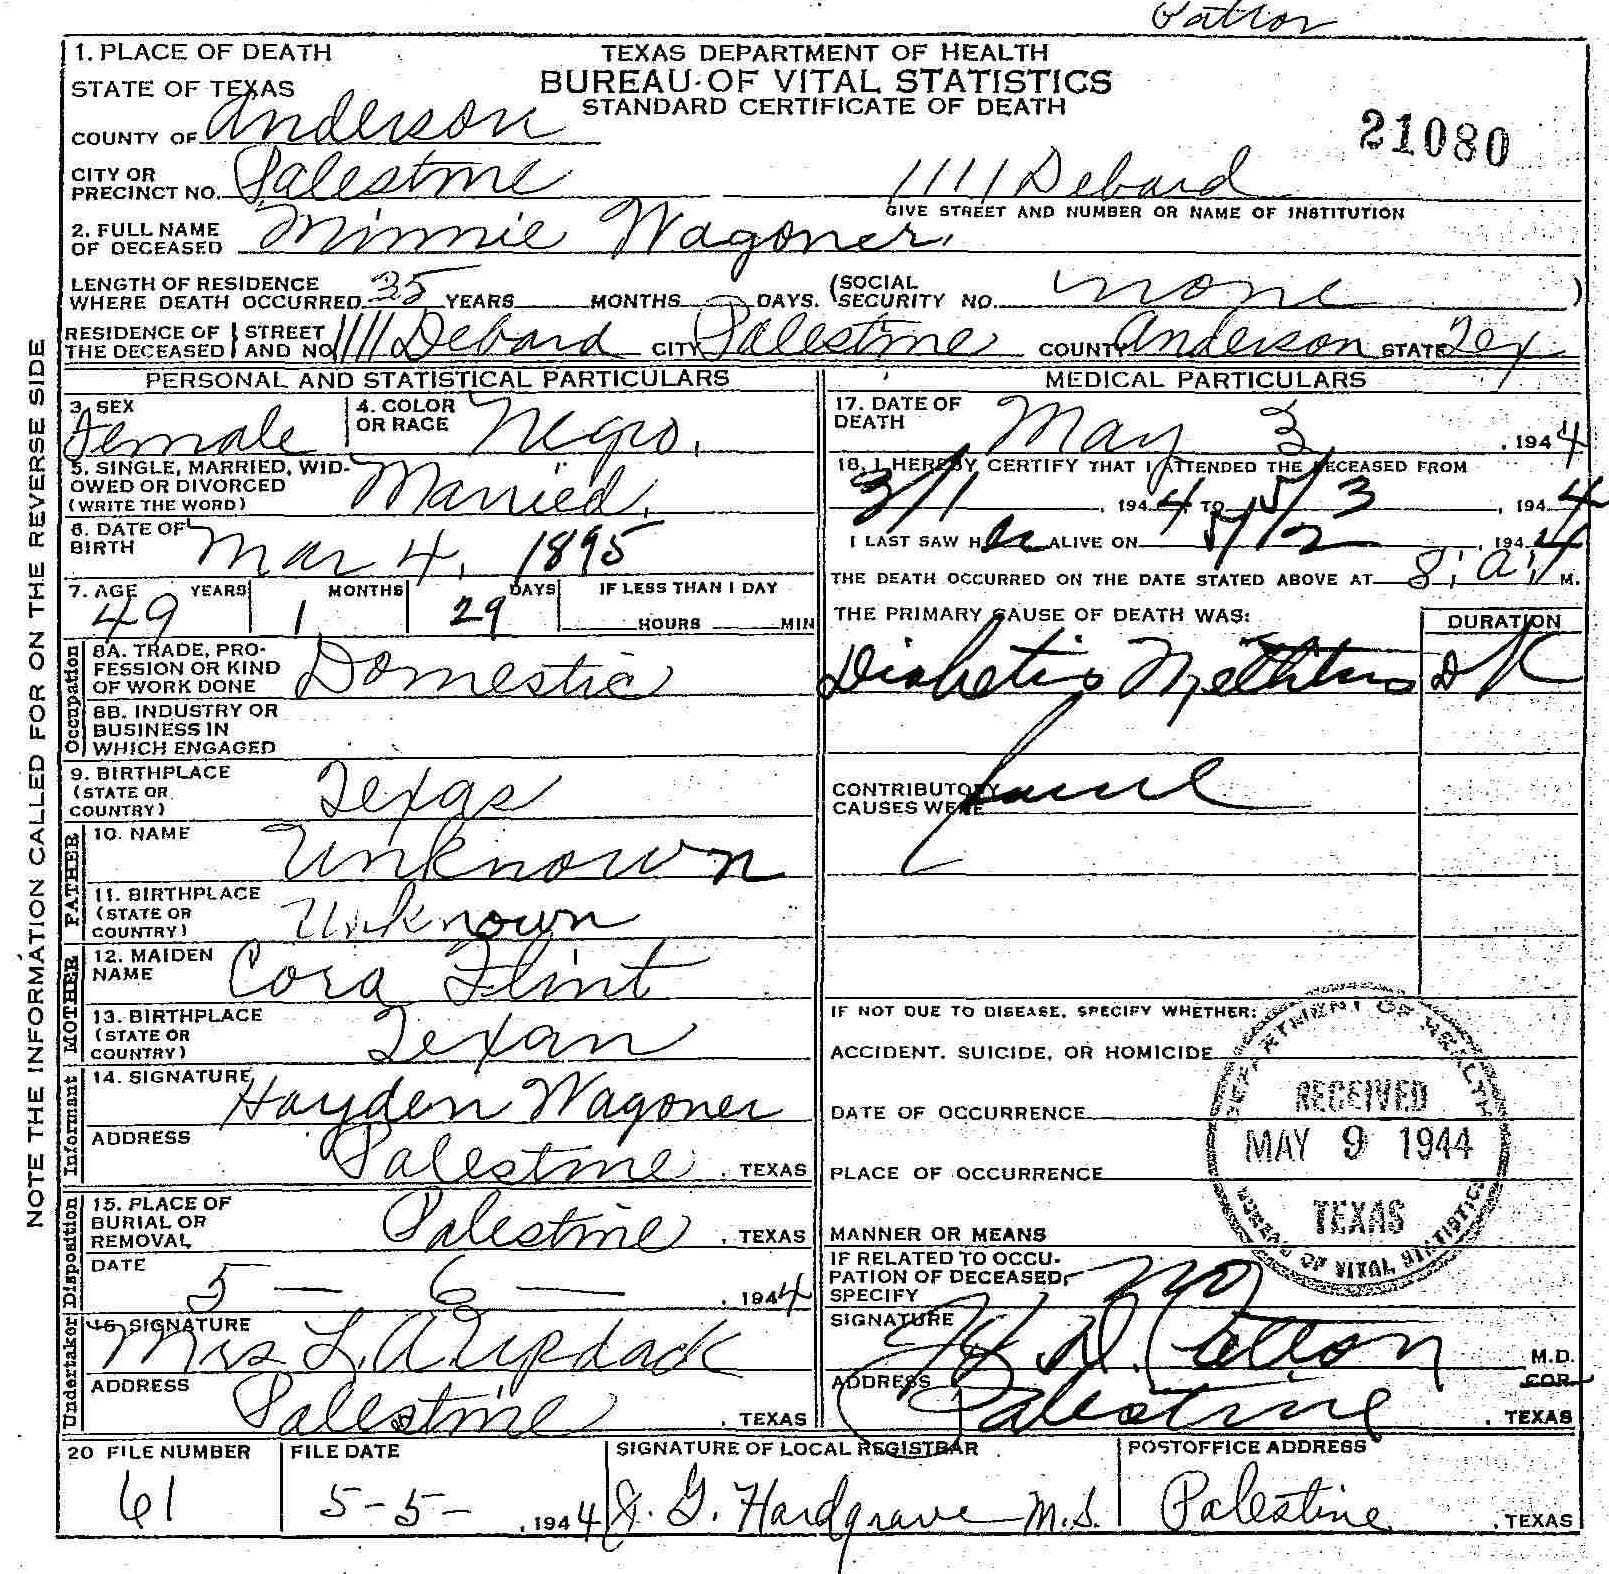 Patton
1. PLACE OF DEATH
TEXAS DEPARTMENT OF HEALTH
STATE OF TEXAS
BUREAU OF VITAL STATISTICS
STANDARD CERTIFICATE OF DEATH
COUNTY OF Anderson
21080
CITY OR PRECINCT NO. Palestine 1111 Debard
GIVE STREET AND NUMBER OR NAME OF INSTITUTION
2. FULL NAME OF DECEASED Minnie Wagoner.
LENGTH OF RESIDENCE WHERE DEATH OCCURRED 35 YEARS MONTHS DAYS. (SOCIAL SECURITY NO. none )
RESIDENCE OF THE DECEASED STREET AND NO 1111 Debard CITY Palestine COUNTY Anderson STATE Tex
NOTE THE INFORMATION CALLED FOR ON THE REVERSE SIDE
PERSONAL AND STATISTICAL PARTICULARS
3. SEX Female
4. COLOR OR RACE Negro.
5. SINGLE, MARRIED, WIDOWED OR DIVORCED (WRITE THE WORD) Married.
6. DATE OF BIRTH Mar 4, 1895
7. AGE 49 YEARS 1 MONTHS 29 DAYS IF LESS THAN 1 DAY
HOURS MIN
Occupation
8A. TRADE, PROFESSION OR KIND OF WORK DONE Domestic
8B. INDUSTRY OR BUSINESS IN WHICH ENGAGED
9. BIRTHPLACE (STATE OR COUNTRY) Texas
FATHER
10. NAME Unknown
11. BIRTHPLACE (STATE OR COUNTRY) Unknown
MOTHER
12. MAIDEN NAME Cora Flint
13. BIRTHPLACE (STATE OR COUNTRY) Texan
Informant
14. SIGNATURE Hayden Wagoner
ADDRESS Palestine, TEXAS
Disposition
15. PLACE OF BURIAL OR REMOVAL Palestine, TEXAS
DATE 5 — 6 — , 1944
Undertaker
16. SIGNATURE Mrs L. A. Updack
ADDRESS Palestine, TEXAS
MEDICAL PARTICULARS
17. DATE OF DEATH May 3, 1944
18. I HEREBY CERTIFY THAT I ATTENDED THE DECEASED FROM
3/1, 1944 TO 5/3, 1944
I LAST SAW Her ALIVE ON 5/2, 1944
THE DEATH OCCURRED ON THE DATE STATED ABOVE AT 8: a. M.
THE PRIMARY CAUSE OF DEATH WAS: DURATION
Diabetis Mellitus DK
CONTRIBUTORY CAUSES WERE Same
IF NOT DUE TO DISEASE, SPECIFY WHETHER:
ACCIDENT, SUICIDE, OR HOMICIDE
DATE OF OCCURRENCE
PLACE OF OCCURRENCE
MANNER OR MEANS
DEPARTMENT OF HEALTH
RECEIVED
MAY 9 1944
TEXAS
BUREAU OF VITAL STATISTICS
IF RELATED TO OCCUPATION OF DECEASED, SPECIFY no
SIGNATURE H. D. Patton M.D.
COR.
ADDRESS Palestine, TEXAS
20 FILE NUMBER 61
FILE DATE 5-5-, 1944
SIGNATURE OF LOCAL REGISTRAR J. G. Hardgrave M.S.
POSTOFFICE ADDRESS Palestine, TEXAS